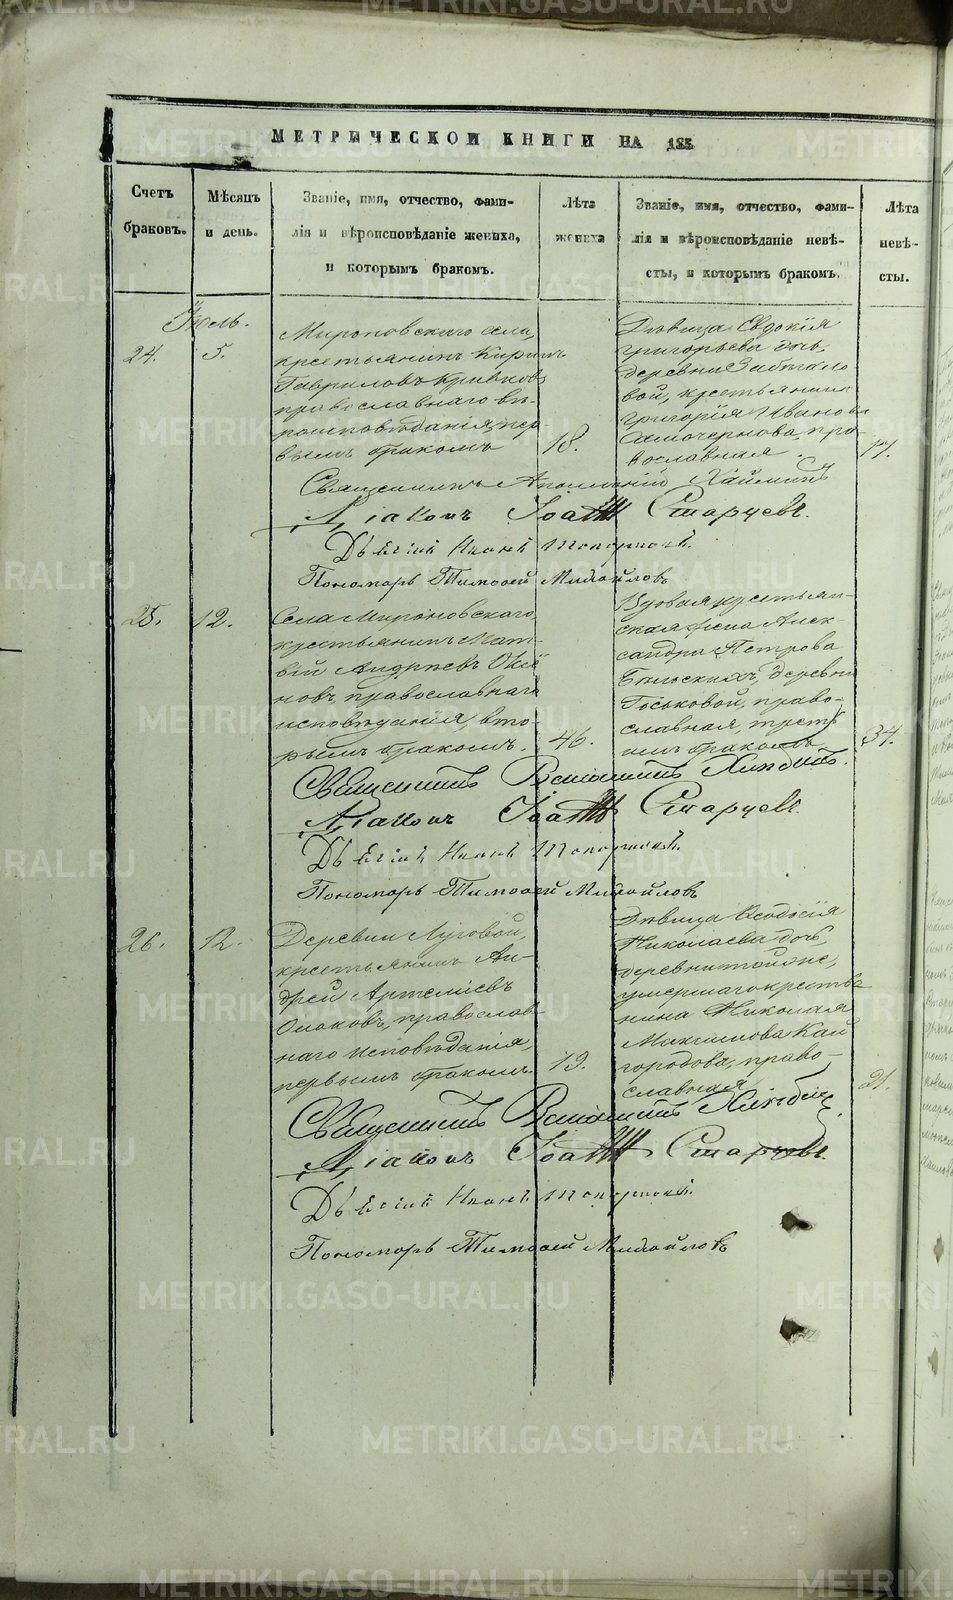 МЕТРИЧЕСКОЙ КНИГИ НА 185
Счетъ браковъ.
Мѣсяцъ и день.
Званіе, имя, отчество, фами-
лія и вѣроисповѣданіе жениха,
и которымъ бракомъ.
Лѣта жениха
Званіе, имя, отчество, фами-
лія и вѣроисповѣданіе невѣ-
сты, и которымъ бракомъ.
Лѣта невѣ-
сты.
Іюль.
24.
5.
Мироновскаго села,
крестьянинъ Кирилъ
Гавриловъ
православнаго вѣ-
роисповѣданія, пер-
вымъ бракомъ
18.
Дѣвица Евдокія
Григорьева дочь,
деревни
вой, крестьянина
Григорія Иванова
Самочернова, пра-
вославная.
17.
Священникъ
Діаконъ Іоаннъ Старцевъ.
Дьячекъ Иванъ
Пономарь Тимоѳей Михайловъ
25.
12.
Села Мироновскаго,
крестьянинъ Мат-
вій Андреевъ
новъ, православнаго
исповѣданія, вто-
рымъ бракомъ.
46.
Вдовая крестьян-
ская жена Алек-
сандра Петрова
Бѣльскихъ, деревни
Госьковой, право-
славная, треть-
имъ бракомъ
34.
Священникъ Веніаминъ
Діаконъ Іоаннъ Старцевъ
Дьячекъ Иванъ
Пономарь Тимоѳей Михайловъ
26.
12.
Деревни Луговой,
крестьянинъ Ан-
дрей Артеміевъ
православ-
наго исповѣданія,
первымъ бракомъ.
19.
Дѣвица Ѳеодосія
Николаева дочь,
деревни тойже,
умершаго крестья-
нина Николая
Максимова Кай
городова, право-
славная
21.
Священникъ Веніаминъ
Діаконъ Іоаннъ Старцевъ.
Дьячекъ Иванъ
Пономарь Тимоѳей Михайловъ
METRIKI.GASO-URAL.RU